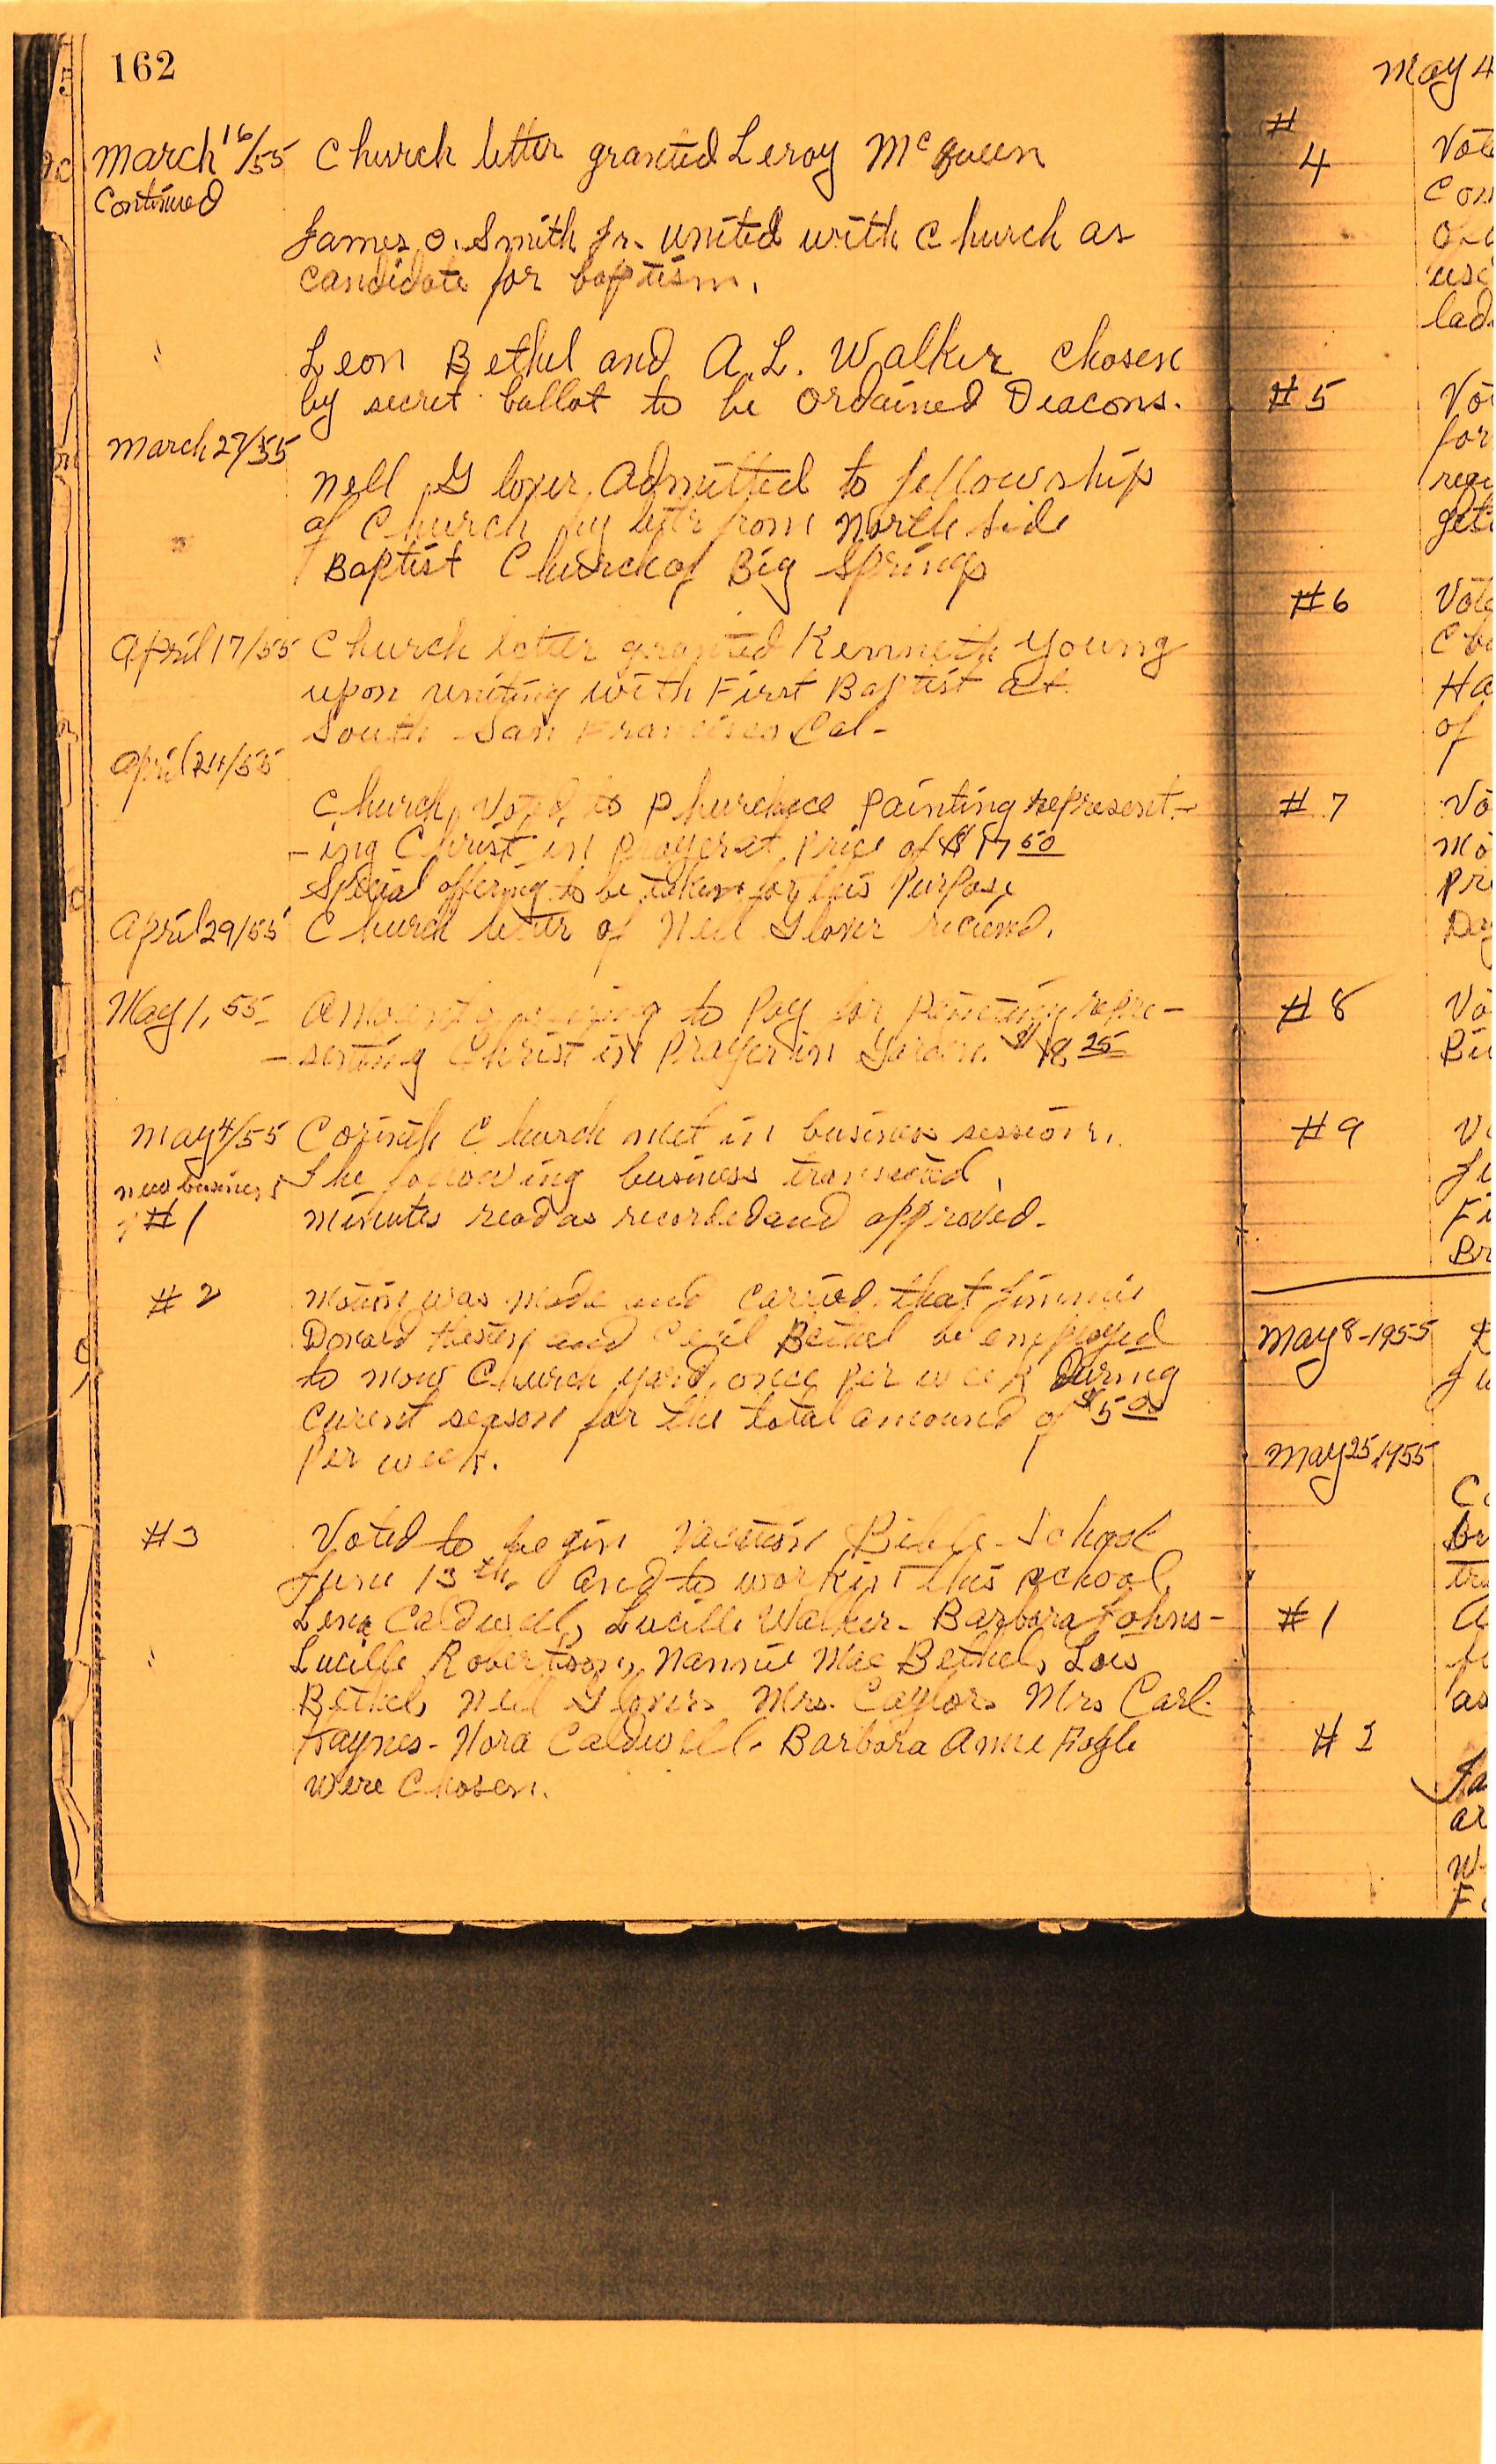 162
March 16/55 Church letter granted Leroy McQueen
Continued
James O. Smith Jr. united with Church as
candidate for baptism.
" Leon Bethel and A.L. Walker chosen
by secret ballot to be Ordained Deacons.
March 27/55
Nell Glover admitted to fellowship
of Church by lettr from North Side
Baptist Church of Big Springs
April 17/55 Church letter granted Kenneth Young
upon uniting with First Baptist at
South San Francisco Cal-
April 24/55
Church voted to Phurchace Painting represent-
-ing Christ in Prayer at Price of $17 50
Special offering to be taken for this Purpose
April 29/55 Church letter of Nell Glover recieved.
May 1, 55- Amount offering to Pay for Painting repre-
-senting Christ in Prayer in Garden. $18 25
May 4/55 Corinth Church met in business session.
new business The following business transacted.
#1 Minutes read as recorded and approved.
#2 Motion was made and carried that Jimmie
Donald and Cecil Bethel be employed
to mow Church yard once per week During
curent season for the total amound of $5 00
Per week.
#3 Voted to begin Vacation Bible School
June 13th. and to work in this school,
Lena Caldwell, Lucille Walker- Barbara Johns-
Lucille Robertson, Nannie Mae Bethel, Lois
Bethel, Nell Glover. Mrs. Caylor. Mrs Carl
Haynes- Nora Caldwell. Barbara Anne Hogle
were chosen.
May 4
#
4 Vote
#5
for
#6 Vote
Ha
of
#7 Vo
mo
pr
#8 Vo
#9
Fi
Br
May 8-1955
May 25, 1955
#1
as
#2
ar